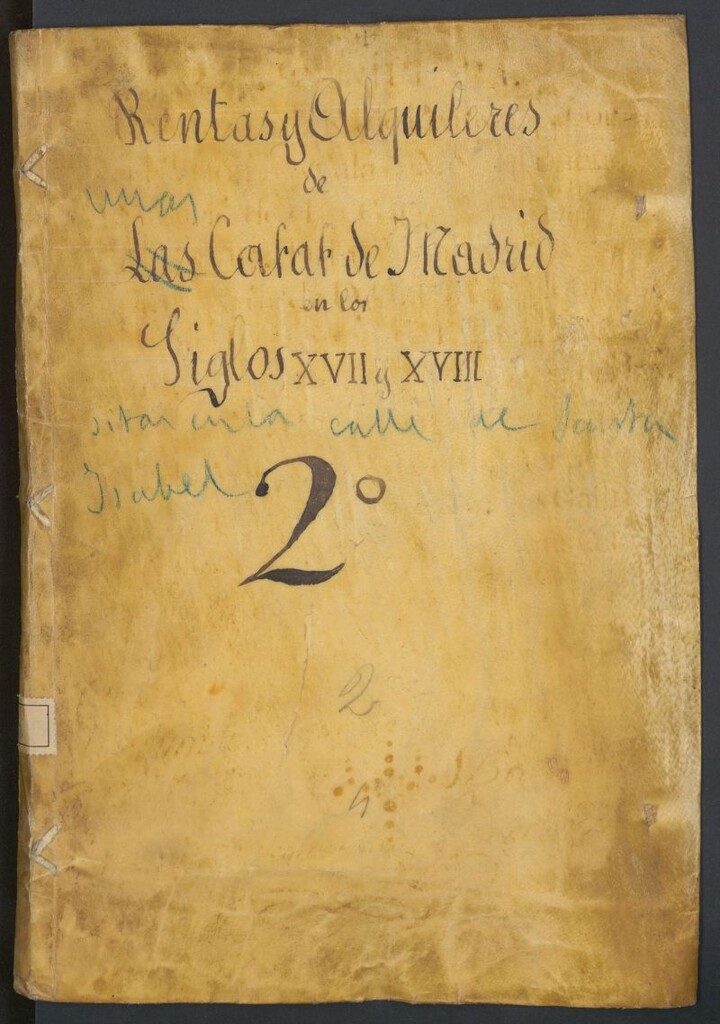 Rentas y Alquileres
de
unas
Las Casas de Madrid
en los
Siglos XVII y XVIII
sitas en la calle de Santa
Isabel
2º
2